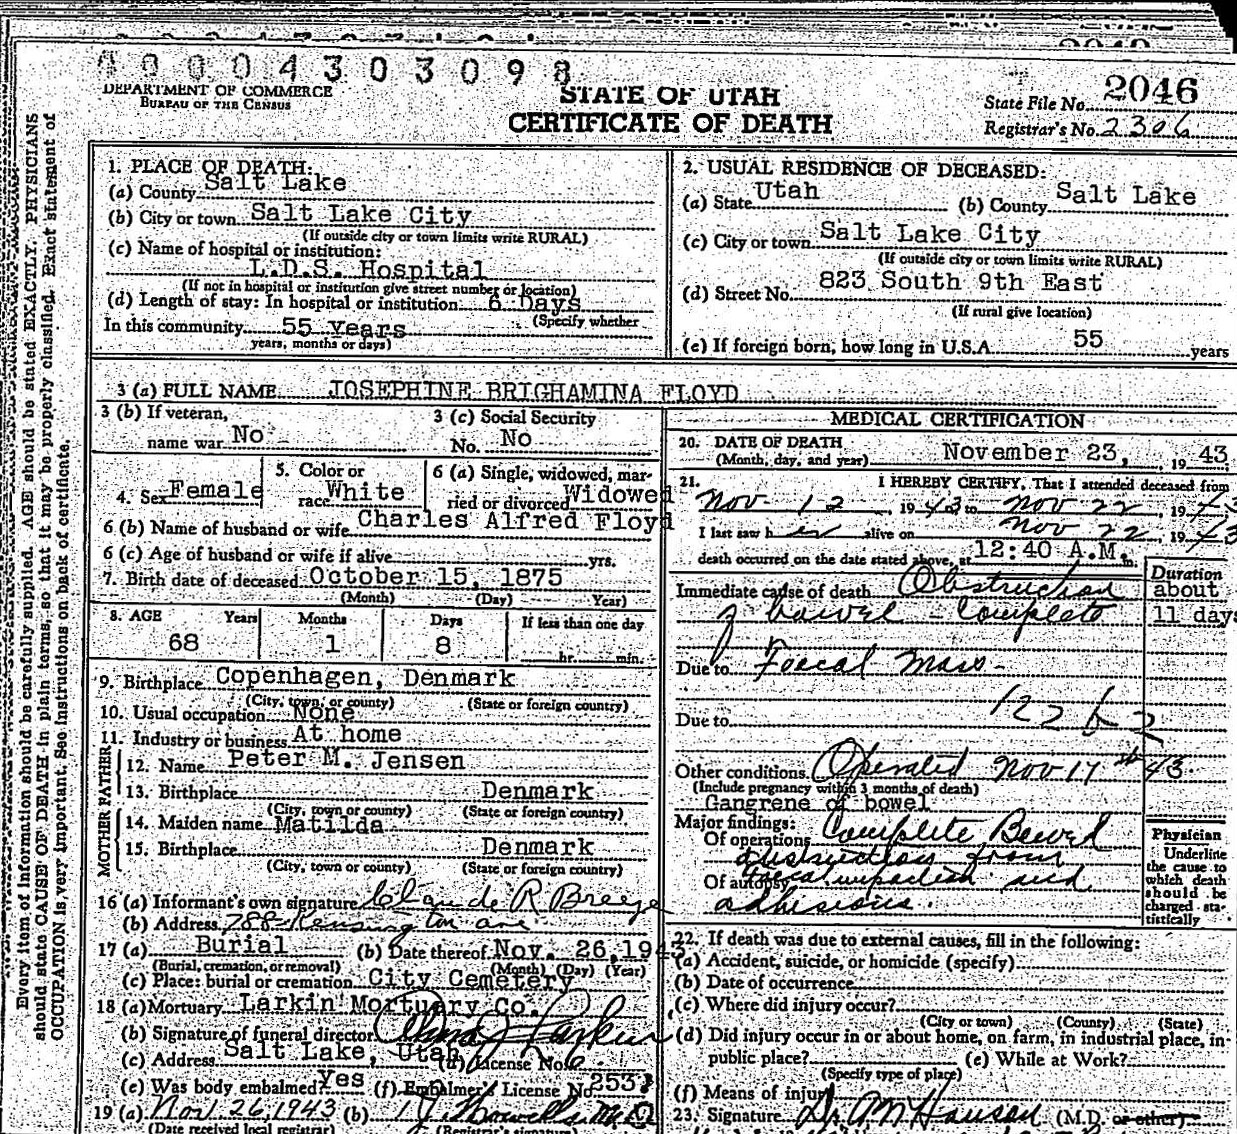 00004303098
DEPARTMENT OF COMMERCE
BUREAU OF THE CENSUS
STATE OF UTAH
CERTIFICATE OF DEATH
State File No. 2046
Registrar's No. 2306
Every item of information should be carefully supplied. AGE should be stated EXACTLY. PHYSICIANS
should state CAUSE OF DEATH in plain terms, so that it may be properly classified. Exact statement of
OCCUPATION is very important. See instructions on back of certificate.
1. PLACE OF DEATH:
(a) County Salt Lake
(b) City or town Salt Lake City
(If outside city or town limits write RURAL)
(c) Name of hospital or institution:
L.D.S. Hospital
(If not in hospital or institution give street number or location)
(d) Length of stay: In hospital or institution 6 Days
(Specify whether
In this community 55 years
years, months or days)
2. USUAL RESIDENCE OF DECEASED:
(a) State Utah (b) County Salt Lake
(c) City or town Salt Lake City
(If outside city or town limits write RURAL)
(d) Street No. 823 South 9th East
(If rural give location)
(e) If foreign born, how long in U.S.A. 55 years
3 (a) FULL NAME JOSEPHINE BRIGHAMINA FLOYD
3 (b) If veteran,
name war No
3 (c) Social Security
No. No
4. Sex Female
5. Color or
race White
6 (a) Single, widowed, mar-
ried or divorced Widowed
6 (b) Name of husband or wife Charles Alfred Floyd
6 (c) Age of husband or wife if alive yrs.
7. Birth date of deceased October 15, 1875
(Month) (Day) Year)
8. AGE Years Months Days If less than one day
68 1 8 hr. min.
9. Birthplace Copenhagen, Denmark
(City, town, or county) (State or foreign country)
10. Usual occupation None
11. Industry or business At home
FATHER
12. Name Peter M. Jensen
13. Birthplace Denmark
(City, town or county) (State or foreign country)
MOTHER
14. Maiden name Matilda
15. Birthplace Denmark
(City, town or county) (State or foreign country)
16 (a) Informant's own signature Claude R Breeze
(b) Address 788 Kensington ave
17 (a) Burial (b) Date thereof Nov. 26, 1943
(Burial, cremation, or removal) (Month) (Day) (Year)
(c) Place: burial or cremation City Cemetery
18 (a) Mortuary Larkin Mortuary Co.
(b) Signature of funeral director Larkin
(c) Address Salt Lake, Utah (d) License No. 26
(e) Was body embalmed? Yes (f) Embalmer's License No. 253
19 (a) Nov. 26, 1943 (b) M.D.
(Date received local registrar) (Registrar's signature)
MEDICAL CERTIFICATION
20. DATE OF DEATH
(Month, day, and year) November 23, 1943
21. I HEREBY CERTIFY, That I attended deceased from
Nov 12, 1943 to Nov 22, 1943
I last saw her alive on Nov 22, 1943
death occurred on the date stated above, at 12:40 A.M. m.
Duration
Immediate cause of death Obstruction about
of bowel - Complete 11 days
Due to Foecal Mass -
122 b 2
Due to
Other conditions Operated Nov 17th 43
(Include pregnancy within 3 months of death)
Gangrene of bowel
Major findings:
Of operations Complete Bowel
obstruction from
Of autopsy foecal impaction and
adhesions.
Physician
Underline
the cause to
which death
should be
charged sta-
tistically
22. If death was due to external causes, fill in the following:
(a) Accident, suicide, or homicide (specify)
(b) Date of occurrence
(c) Where did injury occur?
(City or town) (County) (State)
(d) Did injury occur in or about home, on farm, in industrial place, in
public place? (e) While at Work?
(Specify type of place)
(f) Means of injury
23. Signature Dr. A M Hansen (M.D. or other)